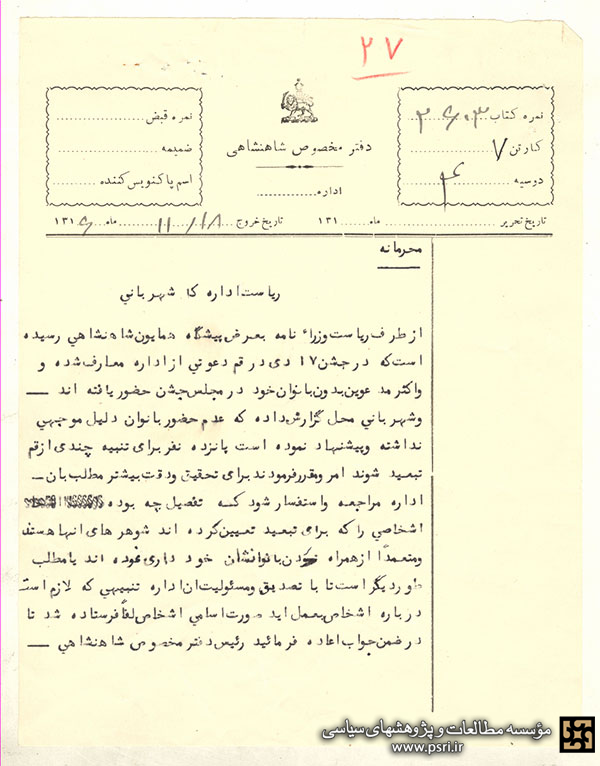 ۲۷
نمره کتاب ۲۶۰۳
کارتن ۷
دوسیه ۴
دفتر مخصوص شاهنشاهی
اداره
نمره قبض
ضمیمه
اسم پاکنویس کننده
تاریخ تحریر ماه ۱۳۱ تاریخ خروج ۱۱/۱۸ ماه ۱۳۱۶
محرمانه
ریاست اداره کل شهرباني
از طرف ریاست وزراء نامه بعرض پیشگاه همایون شاهنشاهي رسیده
است که در جشن ۱۷ دی در قم دعوتي از اداره معارف شده و
واکثر مدعوین بدون بانوان خود در مجلس جشن حضور یافته اند —
وشهرباني محل گزارش داده که عدم حضور بانوان دلیل موجهي
نداشته وپیشنهاد نموده است پانزده نفر برای تنبیه چندی از قم
تبعید شوند امر ومقرر فرمودند برای تحقیق ودقت بیشتر مطلب بان —
اداره مراجعه واستفسار شود که تفصیل چه بوده
اشخاصي را که برای تبعید تعیین کرده اند شوهر های انها هستند
ومتعمدًا از همراه بودن بانوانشان خود داری نموده اند یا مطلب
طور دیگر است تا با تصدیق ومسئولیت ان اداره تنبیهي که لازم است
درباره اشخاص بعمل اید صورت اسامي اشخاص لفاً فرستاده شد تا
در ضمن جواب اعاده فرمائید رئیس دفتر مخصوص شاهنشاهي —
مؤسسه مطالعات و پژوهشهای سیاسی
www.psri.ir